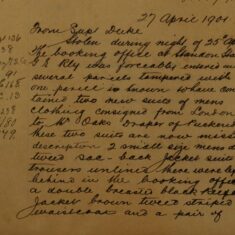 27 April 1901
From Supt Duke
Stolen during night of 25th
the booking office at Standon
G.E Rly was forceably entered and
several parcels tampered with
one parcel is known where con
tained two new suits of mens
clothing consigned from London
to Mr Oaks Draper of
there two suits are now missing
description 2 small size mens
tweed sac-back Jacket suits
trousers unlined there were
behind in the booking office
a double breasted black
Jacket brown tweed striped
waistcoat and a pair of